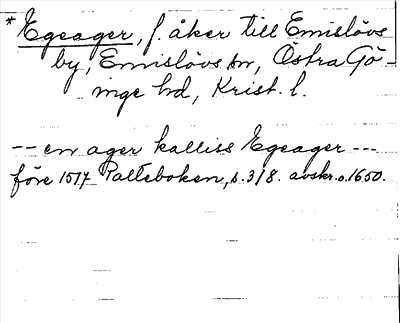 * Egeager, f. åker till Emislövs
by, Emislövs sn, Östra Gö-
inge hd, Krist. l.
-- en ager kalliss Egeager ---
före 1517 Palteboken, s. 318. avskr. o. 1650.